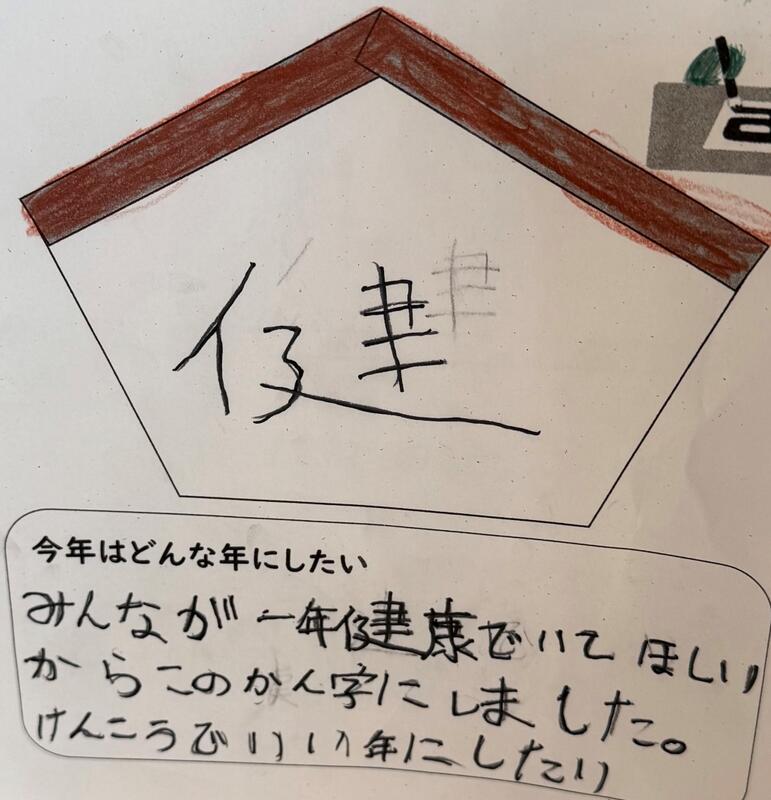 健
今年はどんな年にしたい
みんなが一年健康でいてほしい
からこのかん字にしました。
けんこうでいい年にしたい